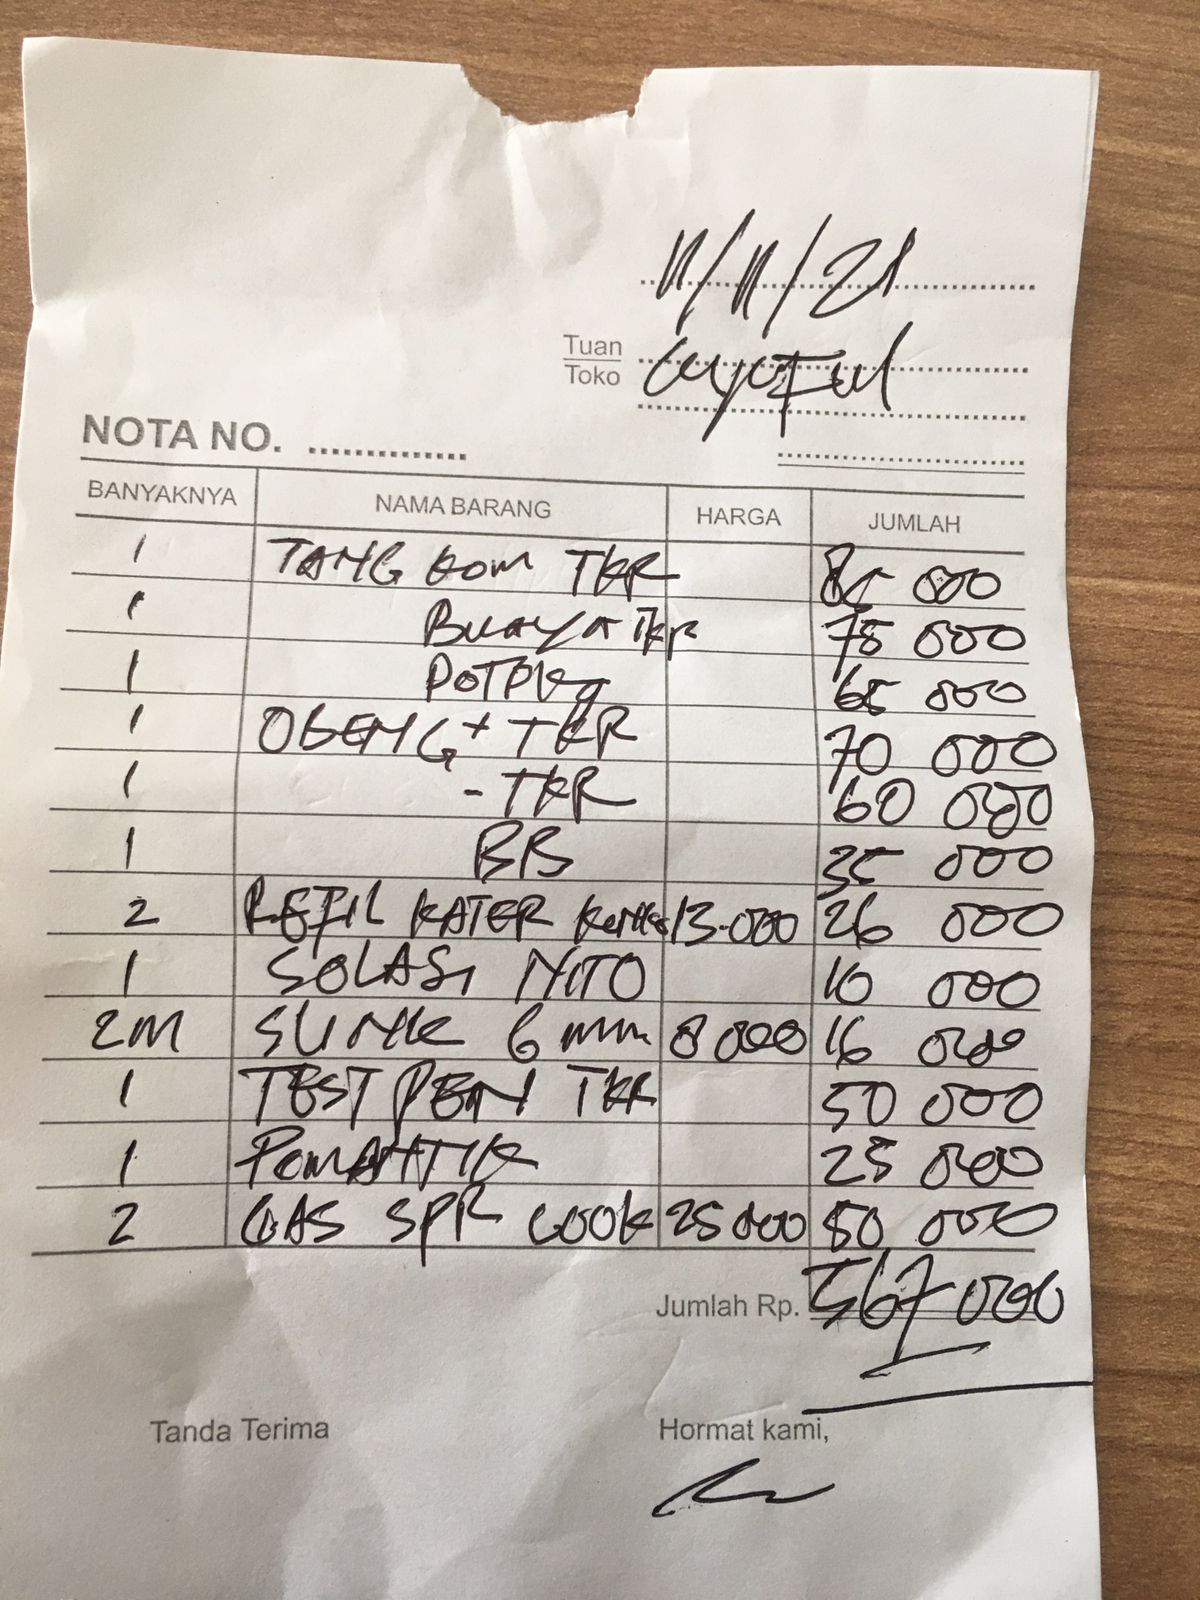 11/11/21
Tuan
Toko
NOTA NO.
BANYAKNYA NAMA BARANG HARGA JUMLAH
1 TANG KOM TKR 85 000
1 Buaya TKR 75 000
1 POTPNG 65 000
1 OBENG + TKR 70 000
1 - TKR 60 000
1 BB 35 000
2 REFIL KATER 13.000 26 000
1 SOLASI NITO 10 000
2M SLINK 6 mm 8 000 16 000
1 TEST PEN TKR 50 000
1 25 000
2 GAS SPR COOK 25 000 50 000
Jumlah Rp. 567 000
Tanda Terima Hormat kami,